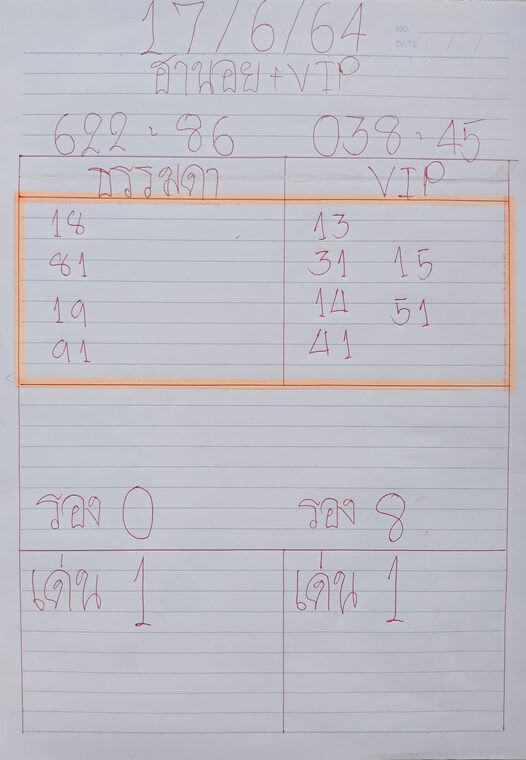 17/6/64
NO.
DATE / /
ฮานอย+VIP
622-86 038-45
ธรรมดา VIP
18 13
81 31 15
19 14 51
91 41
รอง 0 รอง 8
เด่น 1 เด่น 1